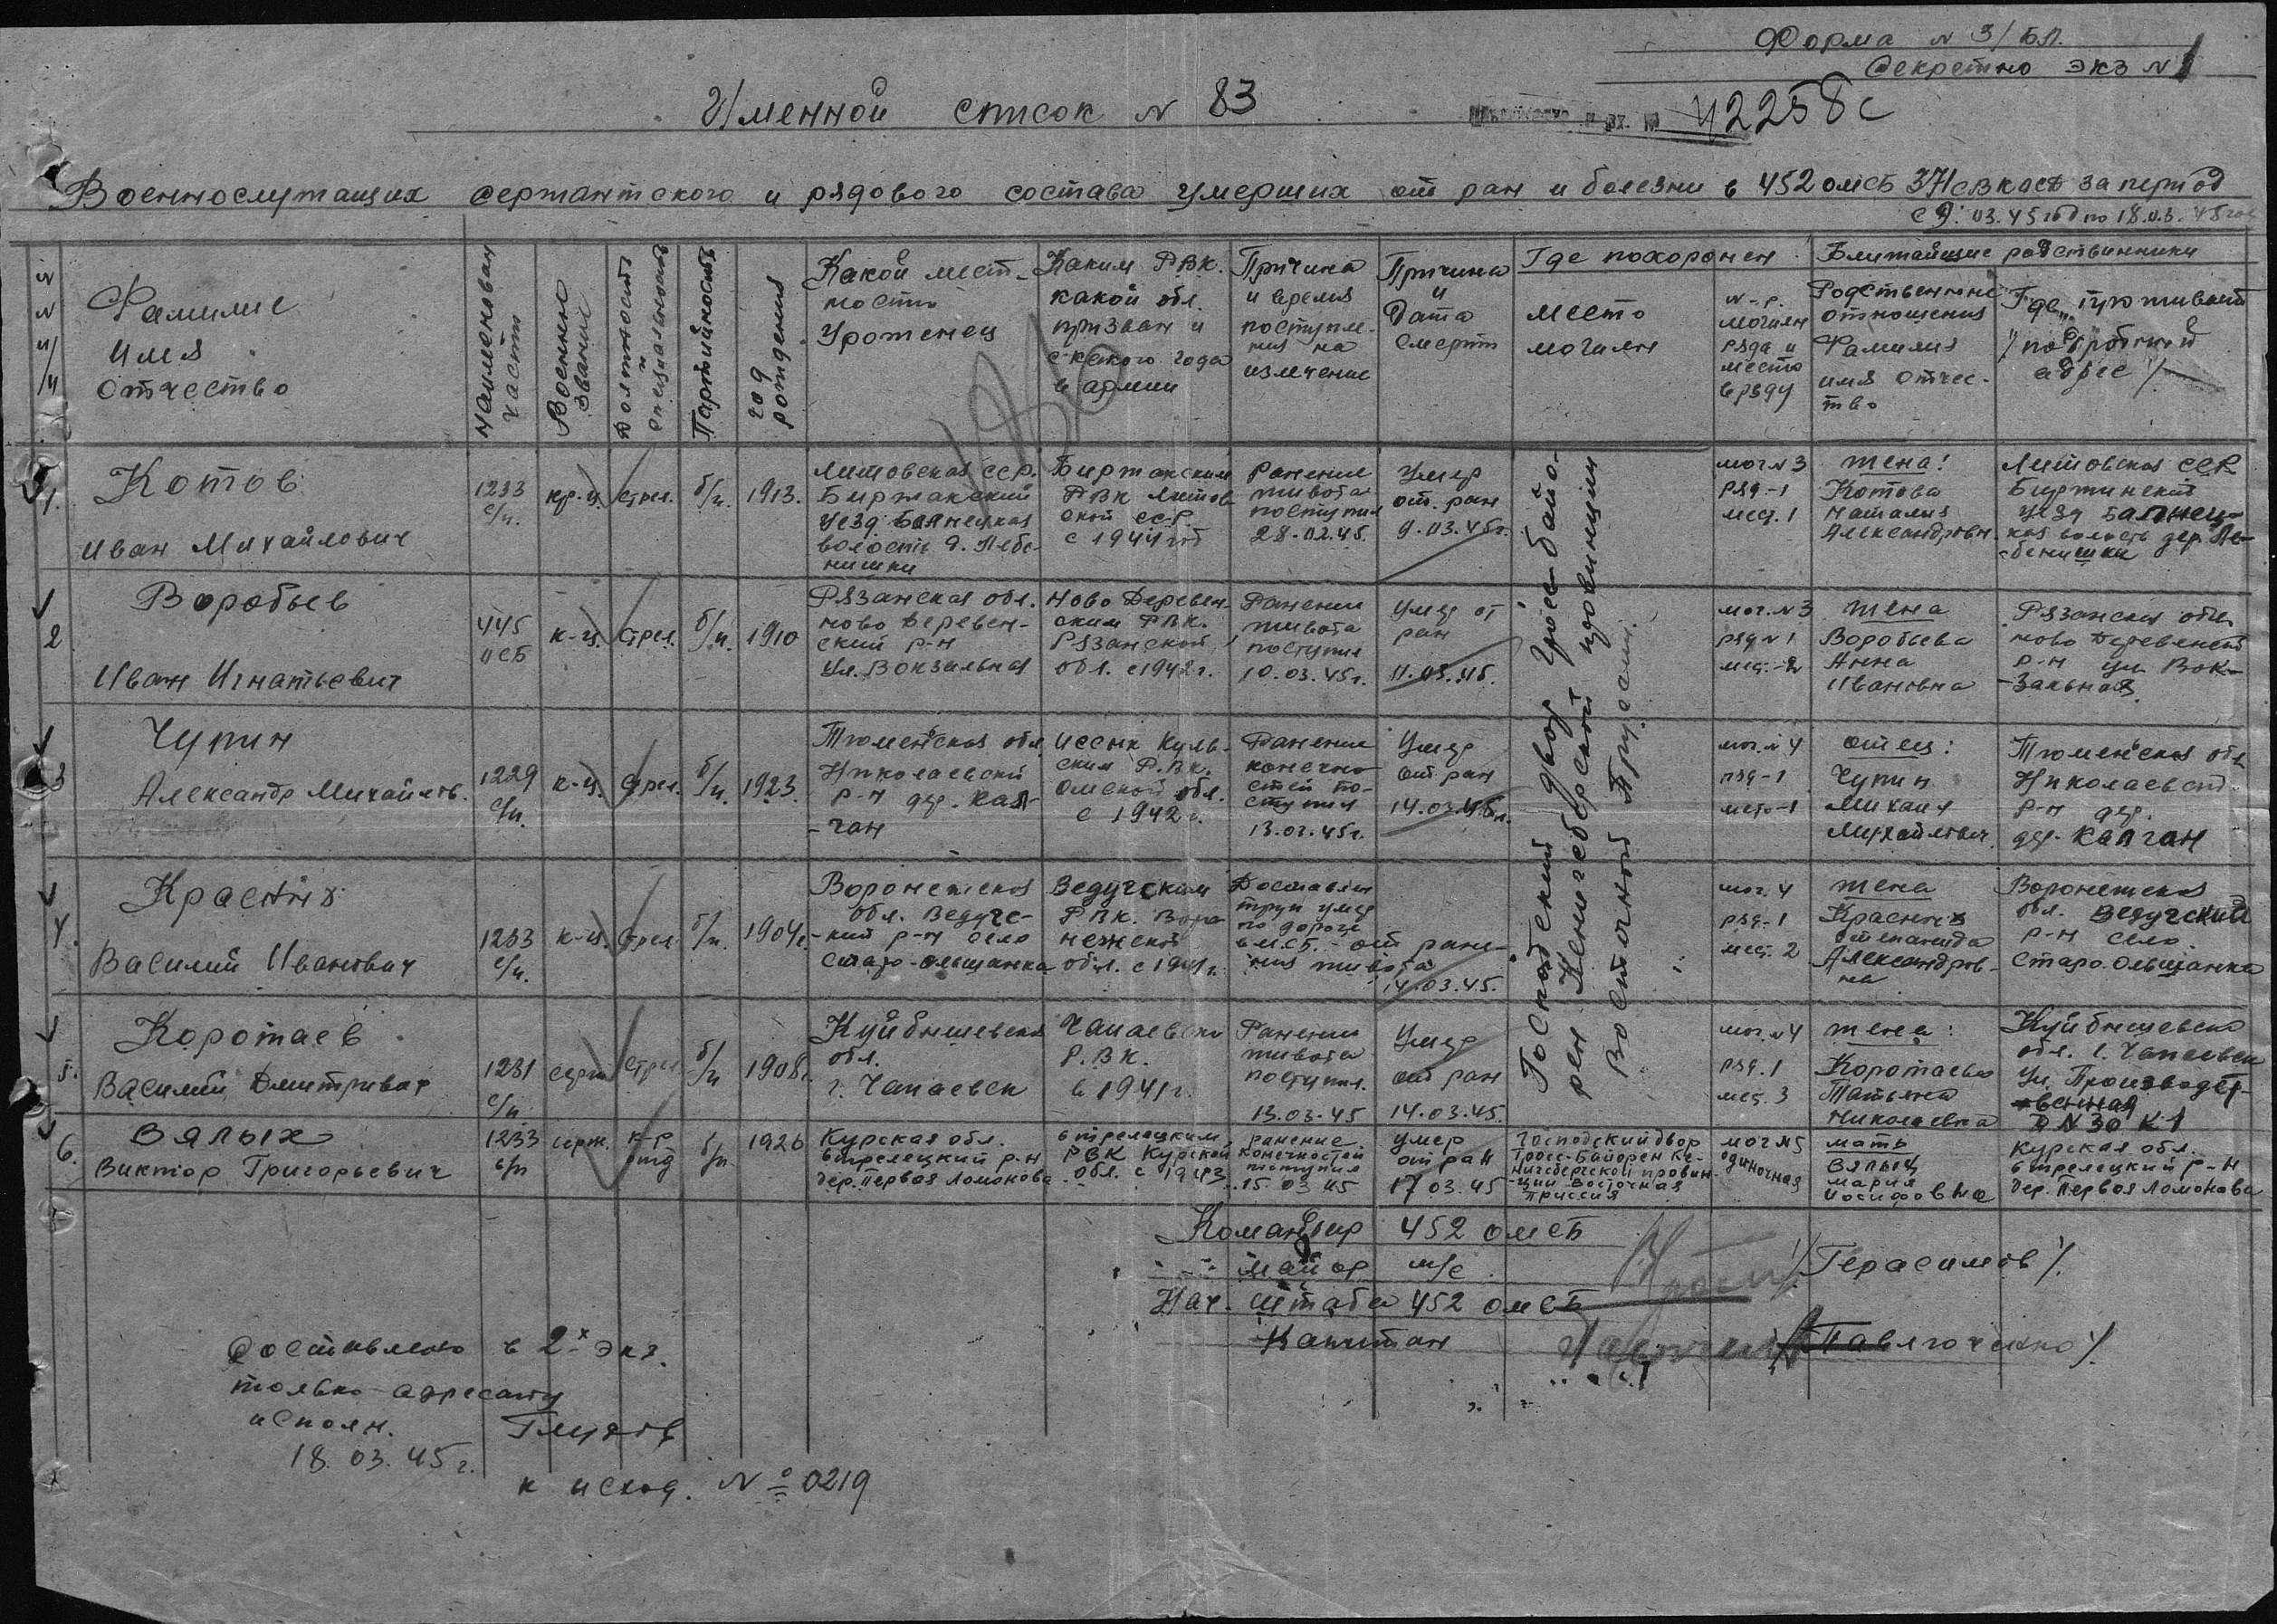 Форма N 3/БП.
Секретно экз N 1
Именной список N 83
вх. № 42258с
Военнослужащих сержантского и рядового состава умерших от ран и болезни в 452 омсб за период
с 9.03.45 год по 18.03.45 год
NN п/п
Фамилие
имя
отчество
Наименован части
Военное звание
Должность и специальность
Партийность
год рождения
Какой мест-
ности
Уроженец
Каким РВК.
какой обл.
призван и
с какого года
в армии
Причина
и время
поступле-
ния на
излечение
Причина
и
Дата
смерти
Где похоронен
место
могилы
N-р.
могилы
ряда и
место
в ряду
Ближайшие родственники
Родственные
отношения
Фамилия
имя отчес-
тво
Где проживает
/подробный
адрес/
1.
Котов
Иван Михайлович
1233
с/п.
кр-ц.
стрел.
б/п.
1913.
Литовская ССР.
Биржайский
уезд
волость д. Пебе-
нишки
РВК Литов
ской ССР.
с 1944 год
Ранение
живота
поступил
28.02.45.
Умер
от ран
9.03.45г.
Господский двор Гросс-Байо-
рен Кенигсбергской провинции
Восточной Пруссии.
мог. N 3
ряд-1
мес. 1
жена!
Котова
Наталия
Александровн.
Литовская ССР
Биржинский
уезд
кая волость дер. Пе-
бенишки
2
Воробьев
Иван Игнатьевич
445
пСБ
к-ц.
стрел.
б/п.
1910
Рязанская обл.
ново Деревен-
ский р-н
ул. Вокзальная
Ново Деревен-
ским РВК.
Рязанской
обл. с 1942 г.
Ранение
живота
поступил
10.03.45г.
Умер от
ран
11.03.45.
мог. N 3
ряд N 1
мес.-2
жена
Воробьева
Анна
Ивановна
Рязанская обл.
ново Деревенский
р-н ул. Вок-
-зальная
3
Чупин
Александр Михайлов.
1229
с/п.
к-ц.
стрел.
б/п.
1923.
Тюменская обл
Николаевский
р-н дер. Кап-
-чан
Иссык Куль-
ским Р.В.К.
Омской обл.
с 1942 г.
Ранение
конечно
стей по-
ступил
13.03.45г.
Умер
от ран
14.03.45г.
мог. N 4
ряд-1
место-1
отец:
Чупин
Михаил
Михайлович.
Тюменская обл
Николаевский
р-н дер.
дер. Капчан
4.
Красных
Василий Иванович
1233
с/п.
к-ц.
стрел.
б/п.
1904г.
Воронежская
обл. Ведугс-
-кий р-н село
Старо-ольшанка
Ведугским
РВК. Воро
нежской
обл. с 1941 г.
Доставлен
труп умер
по дороге
в мСБ. - от ране-
ния живота
14.03.45.
мог. 4
ряд-1
мес. 2
жена
Красных
Степанида
Александров-
на
Воронежская
обл. Ведугский
р-н село.
Старо-Ольшанка
5.
Коротаев
Василий Дмитриевич
1231
с/п
серж
стрел
б/п
1908г.
Куйбышевская
обл.
г. Чапаевск
Чапаевским
Р.В.К.
в 1941 г.
Ранение
живота
поступил.
13.03.45
Умер
от ран
14.03.45.
мог. N 4
ряд. 1
мес. 3
жена:
Коротаева
Татьяна
Николаевна
Куйбышевская
обл. г. Чапаевск
ул. Производст-
венная
Д N 30 К-1
6.
Вялых
Виктор Григорьевич
1233
с/п
серж.
к-р
отд
б/п
1926
Курская обл.
Стрелецкий р-н
дер. Первая Ломонова
Стрелецким
РВК Курской
обл. с 1943
ранение
конечностей
поступил
15.03.45
умер
от ран
17.03.45
Господский двор
Гросс-Байорен Ке-
нигсбергской провин-
-ции Восточная
Пруссия
мог N5
одиночная
мать
Вялых
мария
иосифовна
Курская обл.
Стрелецкий р-н
дер. Первая Ломонова
Командир 452 омСБ
майор м/с /Герасимов/.
Нач. штаба 452 омСБ
Капитан /Павлюченко/.
Составлено в 2-х экз.
только адресату
исполн.
18.03.45г.
к исход. N° 0219